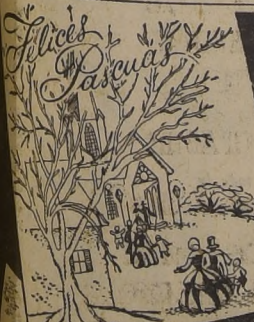 Felices
Pascuas